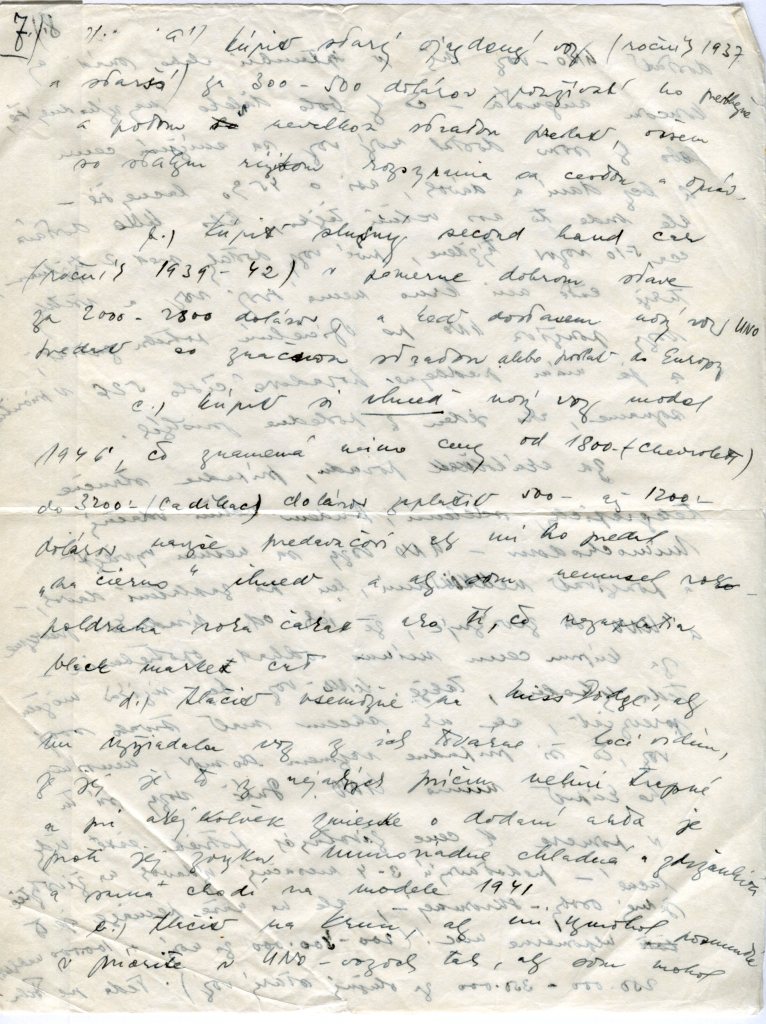 7.)
a.) kúpiť starý ojazdený voz (ročník 1937
a starší) za 300 - 500 dolárov, používať ho
a potom nevelkou stratou predať, ovšem
so stálym rizikom rozsypania sa cestou a opráv.
b.) kúpiť slušný second hand car
(ročník 1939 - 42) v pomerne dobrom stave
za 2000 - 2800 dolárov a keď dostanem nový voz UNO
predať so značnou stratou alebo poslať do Europy
c.) kúpiť si ihneď nový voz model
1946, čo znamená mimo ceny od 1800.- (Chevrolett)
do 3200.- (Cadillac) dolárov zaplatiť 500 - až 1200.-
dolárov navyše predavačovi aby mi ho predal
"na čierno" ihneď a aby som nemusel rok -
poldruha roka čakať ako tí, čo nezaplatia
black market
d.) tlačiť všemožne na Miss Dodge, aby
mi vyžiadala voz z ich továrne, hoci vidím,
že jej je to z nejakých príčin veľmi trapné
a pri akejkoľvek zmienke o dodaní auta je
proti jej zvyku mimoriadne chladná a zdržanlivá
a sama na modele 1941
e.) tlačiť na Krnu, aby mi vymohol
v priorite v UNO - vozoch tak, aby som mohol